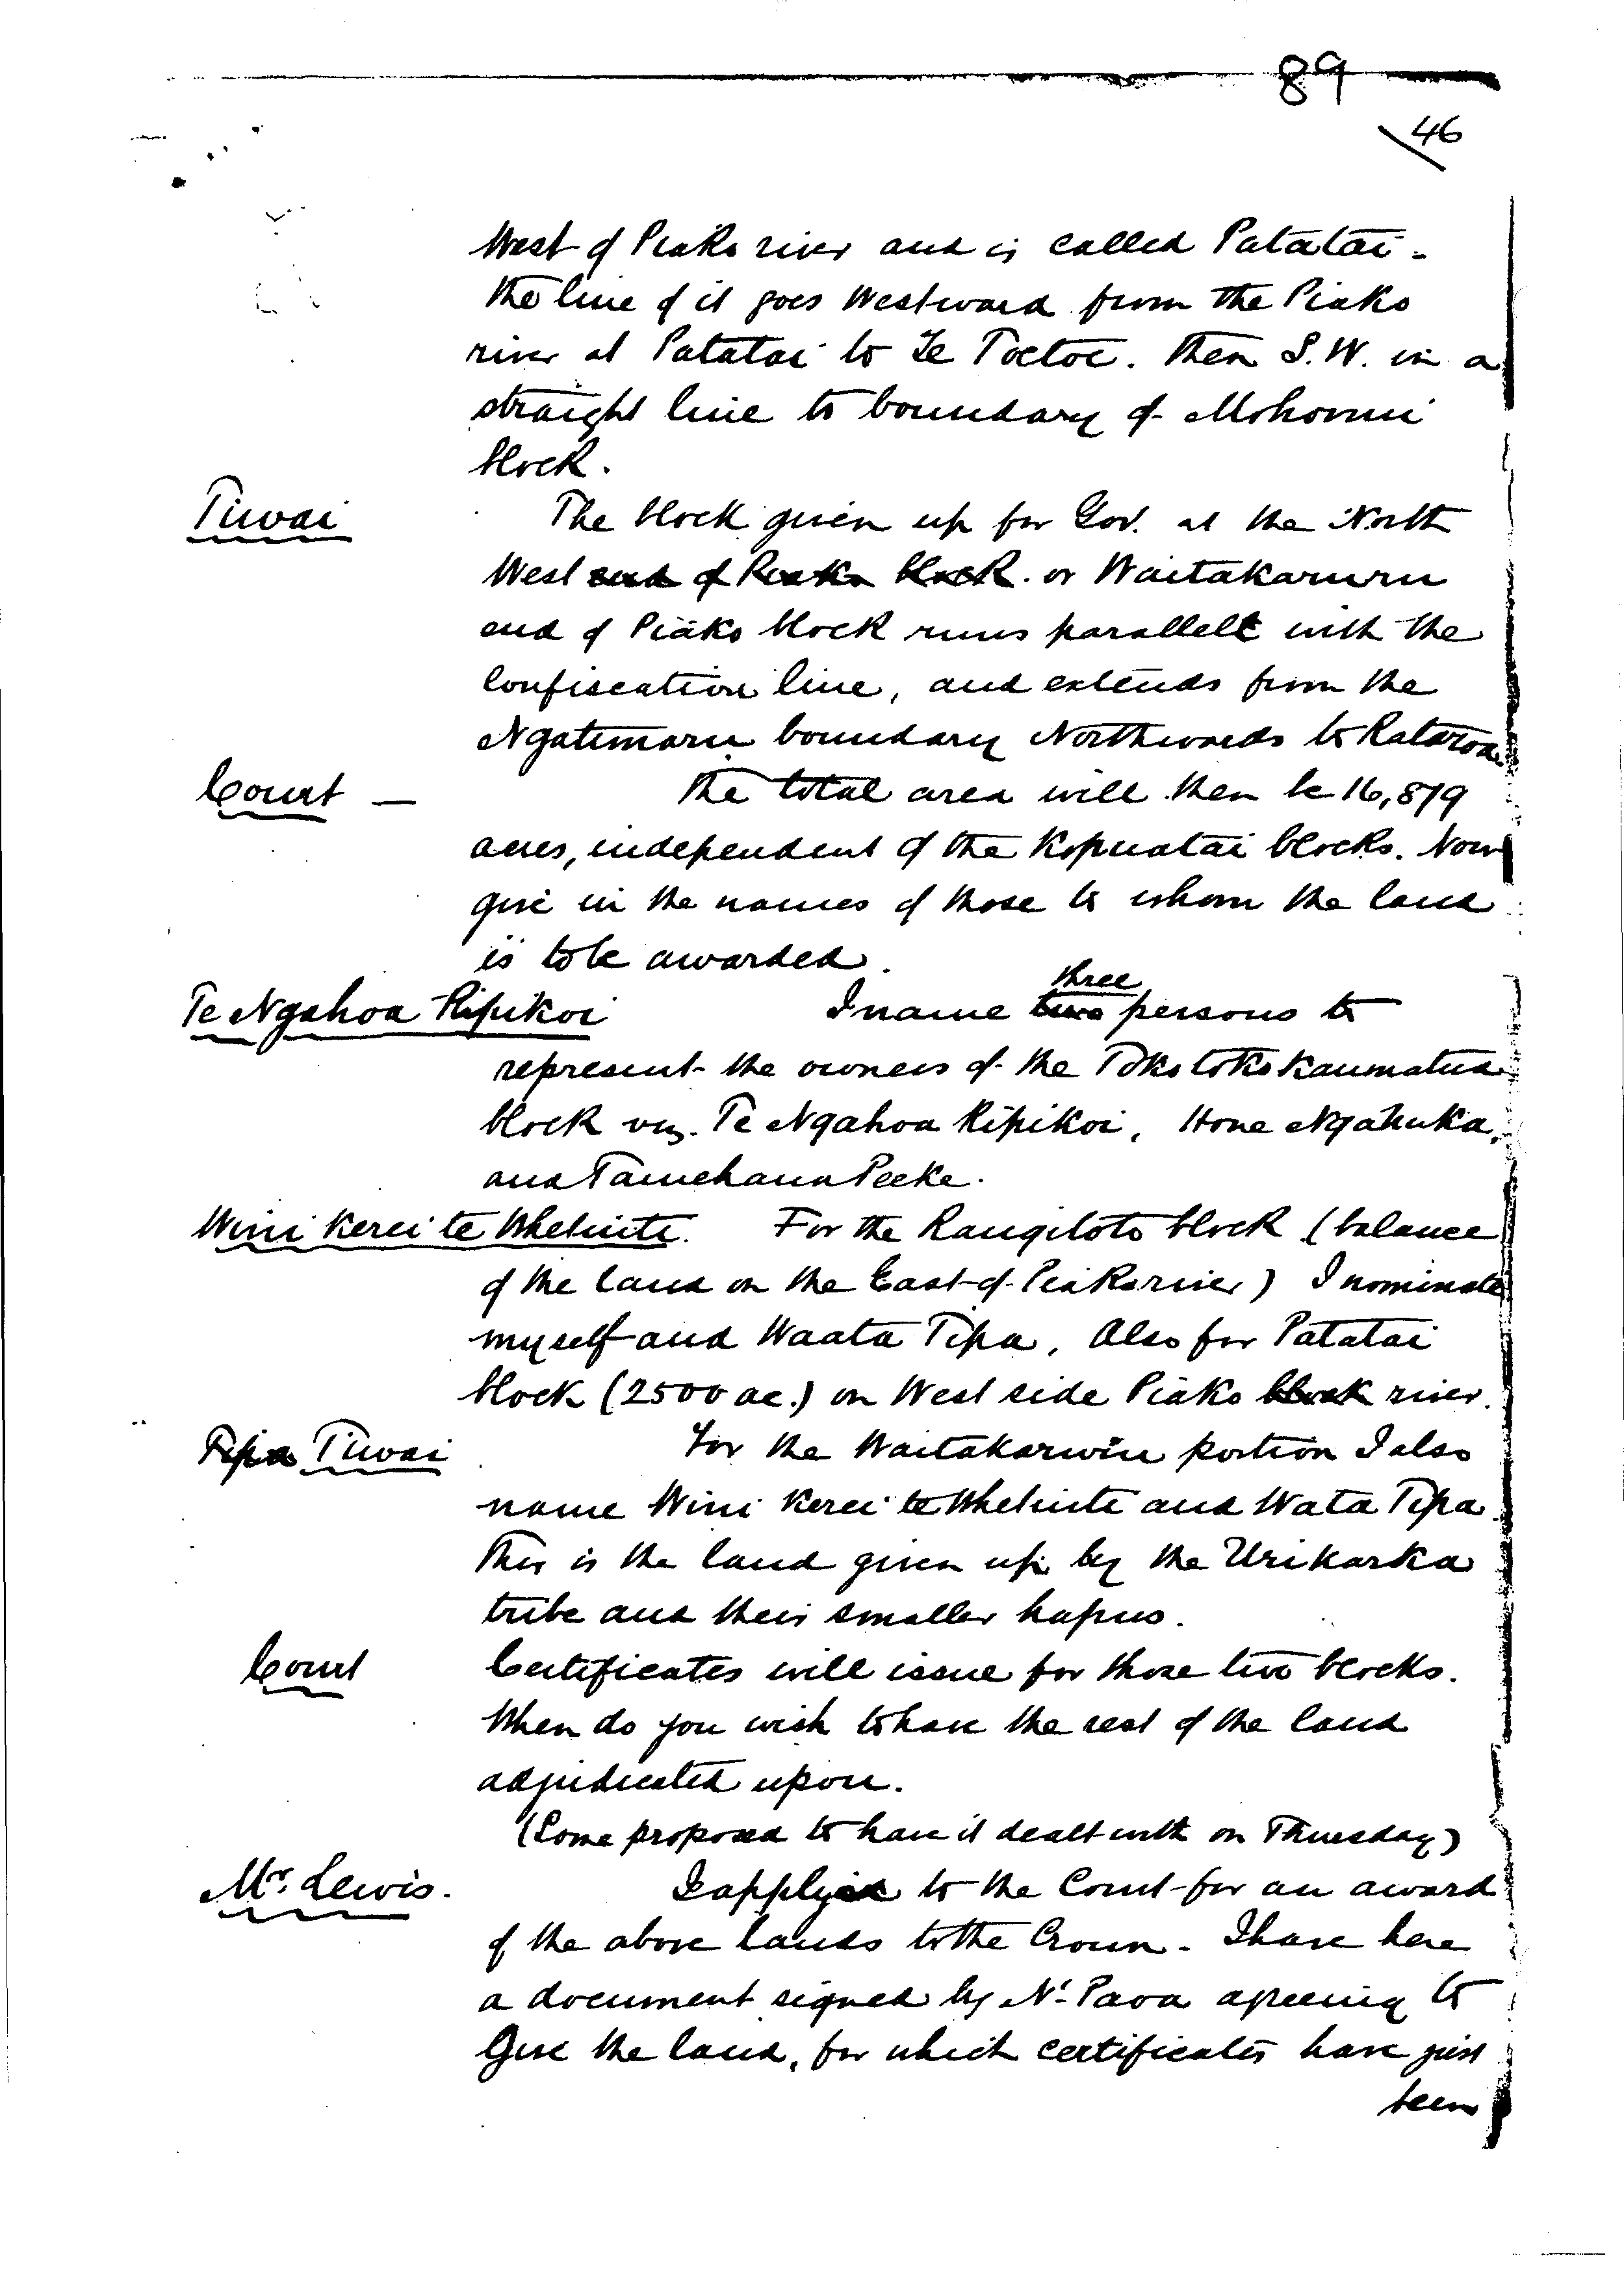 89
46
West of Piako river and is called Patatai -
The line of it goes Westward from the Piako
river at Patatai to Te Toetoe. Then S.W. in a
straight line to boundary of
block.
Tiwai The block given up for Gov. at the North
West end of Piako block. or Waitakaruru
end of Piako block runs parallell with the
Confiscation line, and extends from the
Ngatimaru boundary Northwards to Rataroa
Court — The total area will then be 16,819
acres, independent of the Kopuatai blocks. Now
give in the names of those to whom the land
is to be awarded.
three
Te Ngahoa Ripikoi I name two persons to
represent the owners of the Tokotoko Kaumatua
block viz. Te Ngahoa Ripikoi, Hone Ngahuka,
and Tamehana Peeke.
Wini Kerei te Whetuiti. For the Rangitoto block (balance
of the land on the East of Piako river) I nominate
myself and Waata Tipa, Also for Patatai
block (2500 ac.) on West side Piako block river.
Tipa Tiwai For the portion I also
name Wini Kerei te Whetuiti and Wata Tipa.
This is the land given up by the Urikaraka
tribe and their smaller hapus.
Court Certificates will issue for those two blocks.
When do you wish to have the rest of the land
adjudicated upon.
(Some proposed to have it dealt with on Thursday)
Mr. Lewis. I apply to the Court for an award
of the above lands to the Crown. I have here
a document signed by N. Paoa agreeing to
Give the land, for which certificates have just
been